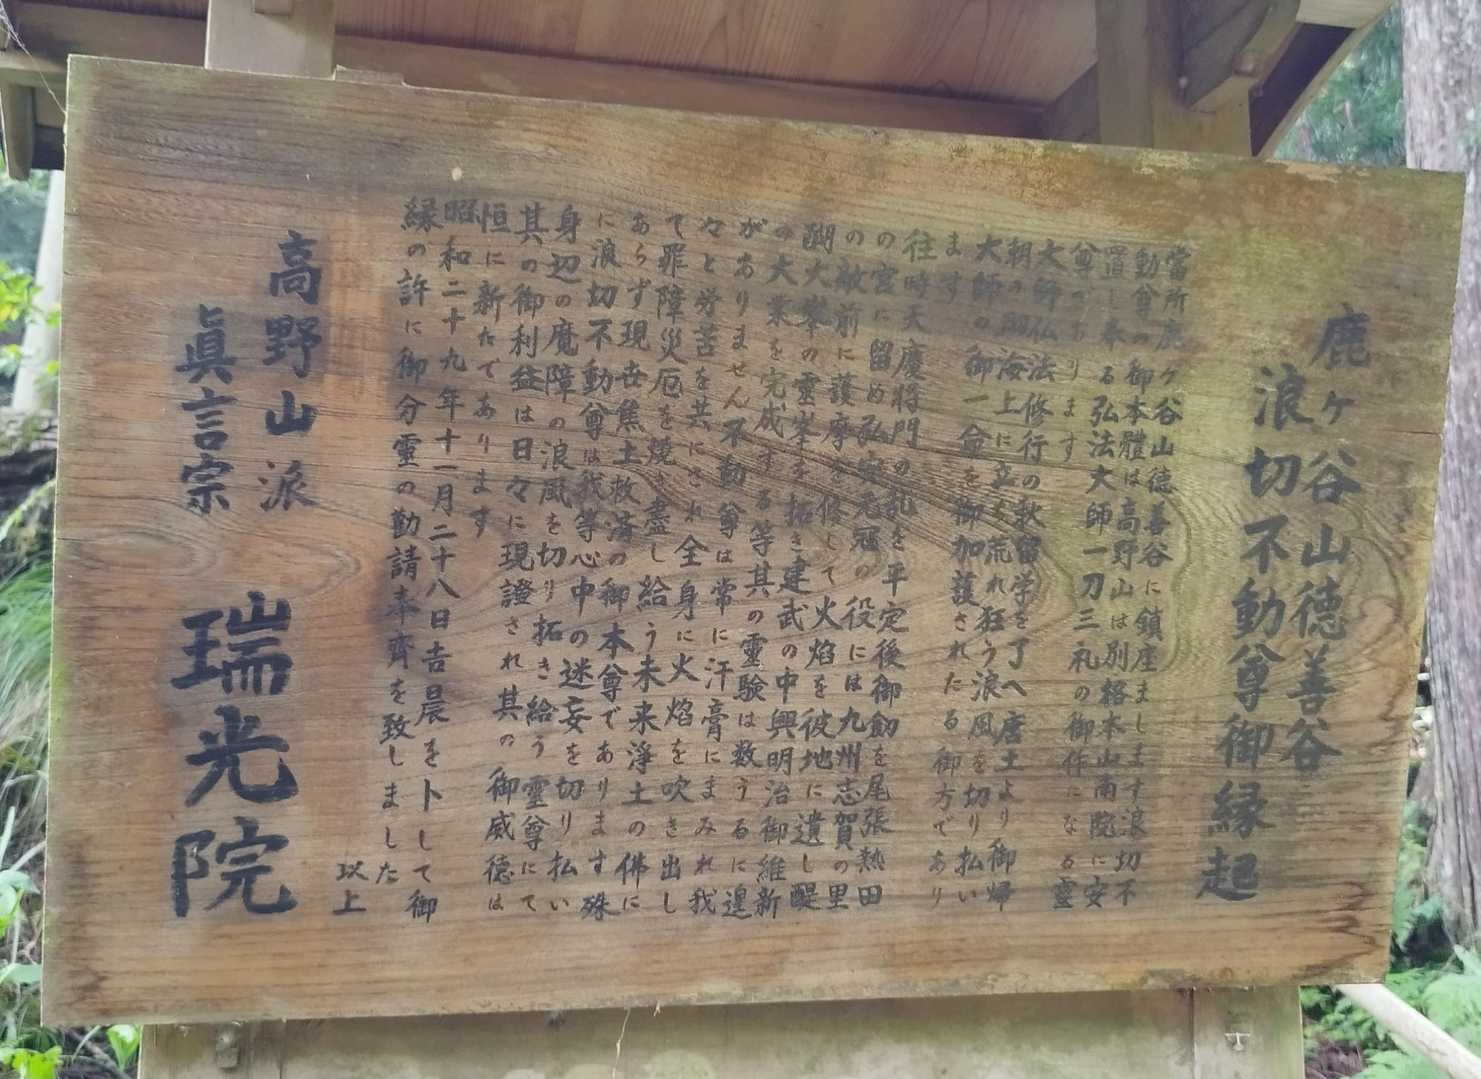 鹿ヶ谷山徳善谷
浪切不動尊御縁起
當所鹿ヶ谷山徳善谷に鎮座まします浪切不
動尊の御本體は高野山は別格本山南院に安
置し奉る弘法大師一刀三礼の御作になる靈
尊であります
大師仏法修行の秋留学を了へ唐土より御帰
朝の砌海上に立ち荒れ狂う浪風を切り払い
大師の御一命を御加護されたる御方であり
ます
往時天慶将門の乱を平定後御劔を尾張熱田
の宮に留め弘安元寇の役には九州志賀の里
の敵前に護摩を修して火焰を彼地に遺し醍
醐大峯の靈峯を拓き建武の中興明治御維新
の大業を完成する等其の靈験は数うるに遑
がありません不動尊は常に汗膏にまみれ我
々と労苦を共にされ全身に火焰を吹き出し
て罪障災厄を焼き盡し給う未来淨土の佛に
あらず現世焦土救済の御本尊であります殊
に浪切不動尊は我等心中の迷妄を切り払い
身辺の魔障の浪風を切り拓き給う靈尊にて
其の御利益は日々に現證され其の御威德は
恒に新たであります
昭和二十九年十一月二十八日吉晨を卜して御
縁の許に御分靈の勧請奉齊を致しました
以上
高野山派
眞言宗
瑞光院